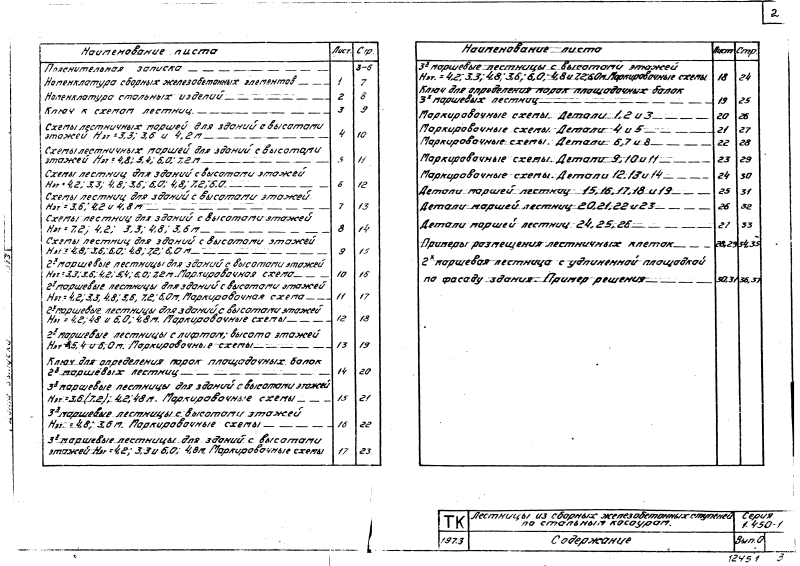 2
Наименование листа Лист. Стр.
Пояснительная записка 3-6
Номенклатура сборных железобетонных элементов 1 7
Номенклатура стальных изделий 2 8
Ключ к схемам лестниц 3 9
Схемы лестничных маршей для зданий с высотами
этажей Нэт = 3,3; 3,6 и 4,2 м 4 10
Схемы лестничных маршей для зданий с высотами
этажей Нэт = 4,8; 5,4; 6,0; 7,2 м 5 11
Схемы лестниц для зданий с высотами этажей
Нэт = 4,2; 3,3; 4,8; 3,6; 6,0; 4,8; 7,2; 6,0. 6 12
Схемы лестниц для зданий с высотами этажей
Нэт = 3,6; 4,2 и 4,8 м 7 13
Схемы лестниц для зданий с высотами этажей
Нэт = 7,2; 4,2; 3,3; 4,8; 3,6 м 8 14
Схемы лестниц для зданий с высотами этажей
Нэт = 4,8; 3,6; 6,0; 4,8; 7,2; 6,0 м 9 15
2х маршевые лестницы для зданий с высотами этажей
Нэт = 3,3; 3,6; 4,2; 5,4; 6,0; 7,2 м. Маркировочная схема 10 16
2х маршевые лестницы для зданий с высотами этажей
Нэт = 4,2; 3,3, 4,8; 3,6, 7,2; 6,0 м, Маркировочная схема 11 17
2х маршевые лестницы для зданий с высотами этажей
Нэт = 4,2; 4,8 и 6,0; 4,8 м. Маркировочные схемы 12 18
2х маршевые лестницы с лифтом; высота этажей
Нэт 5,4 и 6,0 м. Маркировочные схемы 13 19
Ключ для определения марок площадочных балок
2х маршевых лестниц 14 20
3х маршевые лестницы для зданий с высотами этажей
Нэт = 3,6 (7,2); 4,2; 4,8 м. Маркировочные схемы 15 21
3х маршевые лестницы с высотами этажей
Нэт. = 4,8; 3,6 м. Маркировочные схемы 16 22
3х маршевые лестницы для зданий с высотами
этажей Нэт = 4,2; 3,3 и 6,0; 4,8 м. Маркировочные схемы 17 23
Наименование листа Лист Стр.
3х маршевые лестницы с высотами этажей
Нэт. = 4,2; 3,3; 4,8; 3,6; 6,0; 4,8 и 7,2; 6,0 м. Маркировочные схемы 18 24
Ключ для определения марок площадочных балок
3х маршевых лестниц 19 25
Маркировочные схемы. Детали 1, 2 и 3 20 26
Маркировочные схемы. Детали 4 и 5 21 27
Маркировочные схемы. Детали 6, 7 и 8 22 28
Маркировочные схемы. Детали 9; 10 и 11 23 29
Маркировочные схемы. Детали 12, 13 и 14 24 30
Детали маршей лестниц 15, 16, 17, 18 и 19 25 31
Детали маршей лестниц 20, 21, 22 и 23 26 32
Детали маршей лестниц 24, 25, 26 27 33
Примеры размещения лестничных клеток 28, 29 34, 35
2х маршевая лестница с удлиненной площадкой
по фасаду здания. Пример решения 30, 31 36, 37
ТК
1973
Лестницы из сборных железобетонных ступеней
по стальным косоурам.
Содержание
Серия
1.450-1
Вып. 0
12451 3